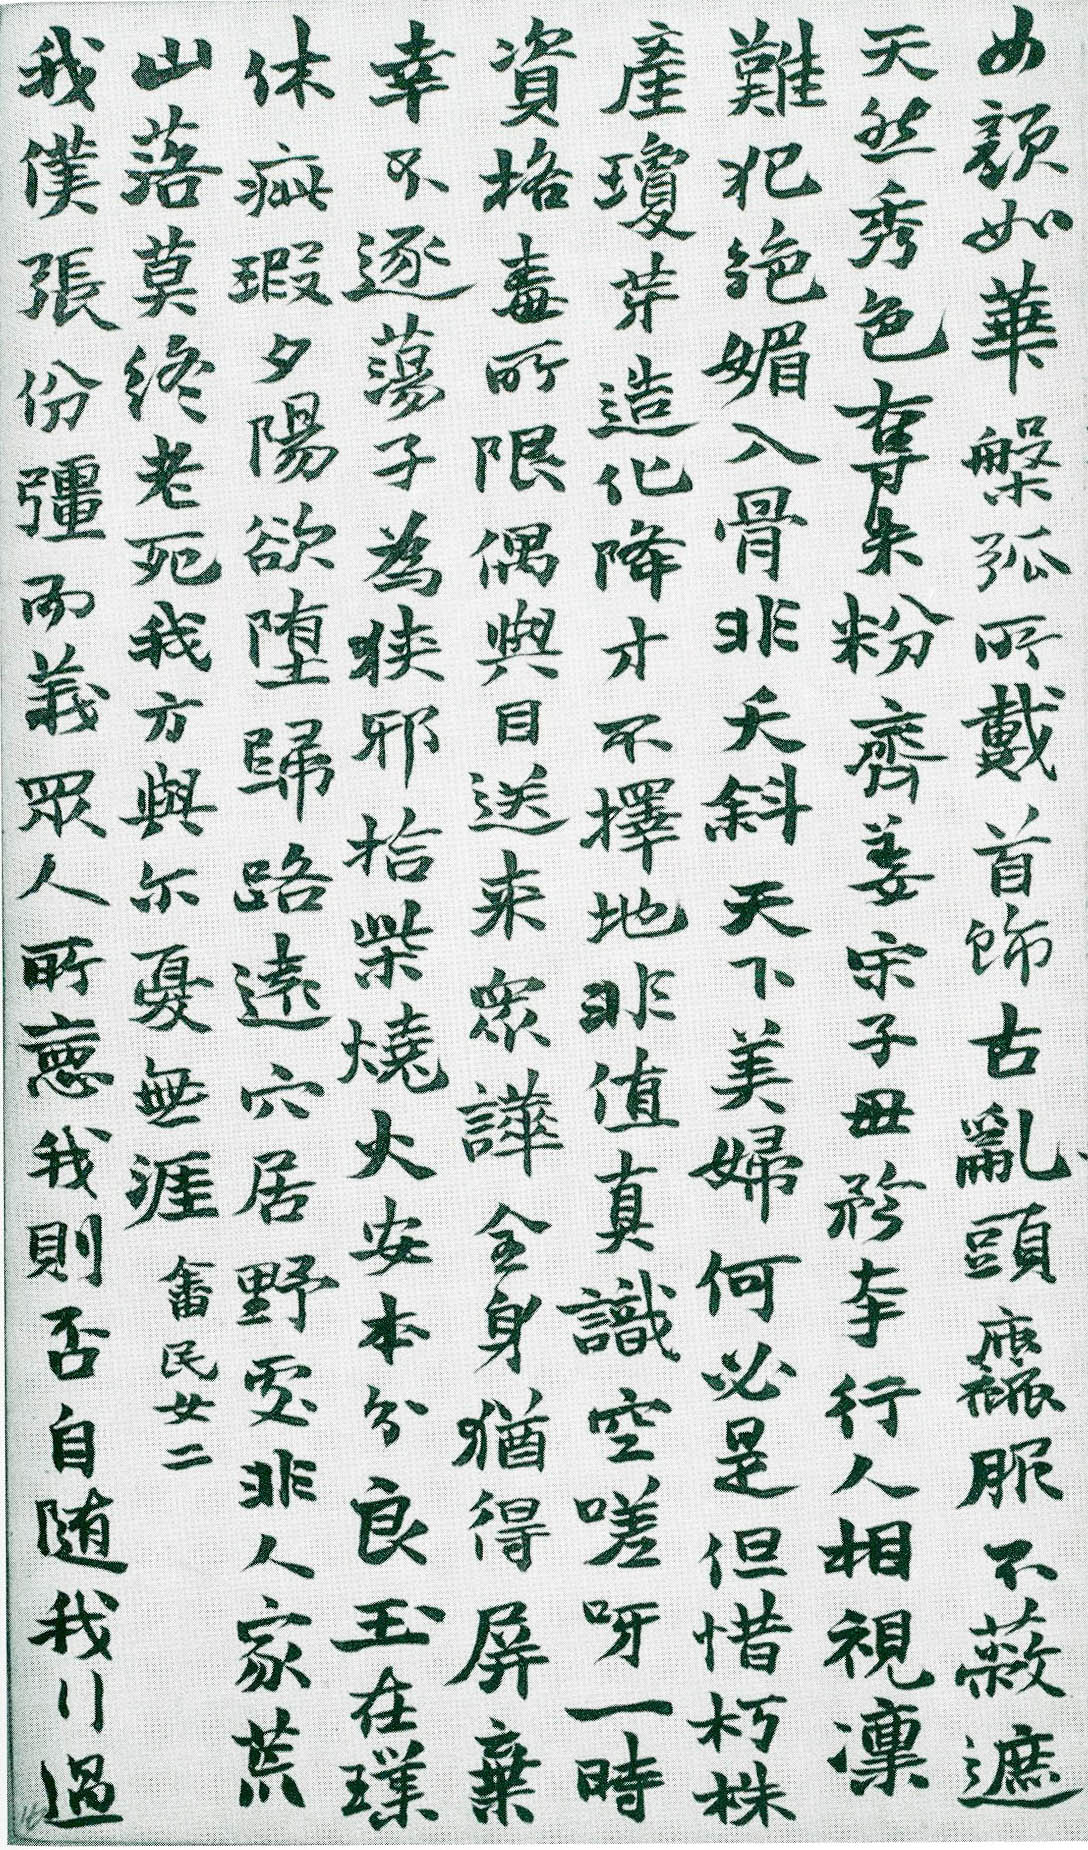 女顏如華槃孤所戴首飾古亂頭麤服不蔽遮
天然秀色奪朱粉齊姜宋子毋矜夸行人相視凜
難犯絕媚入骨非夭斜天下美婦何必是但惜朽株
產瓊芽造化降才不擇地非值真識空嗟呀一時
資格毒所限偶與目送來眾譁全身猶得屏棄
幸不逐蕩子為狹邪拾柴燒火安本分良玉在璞
休疵瑕夕陽欲墮歸路遠穴居野處非人家荒
山落莫終老死我方與尒憂無涯畬民女二
我僕張份彊而義眾人所慝我則否自隨我行過